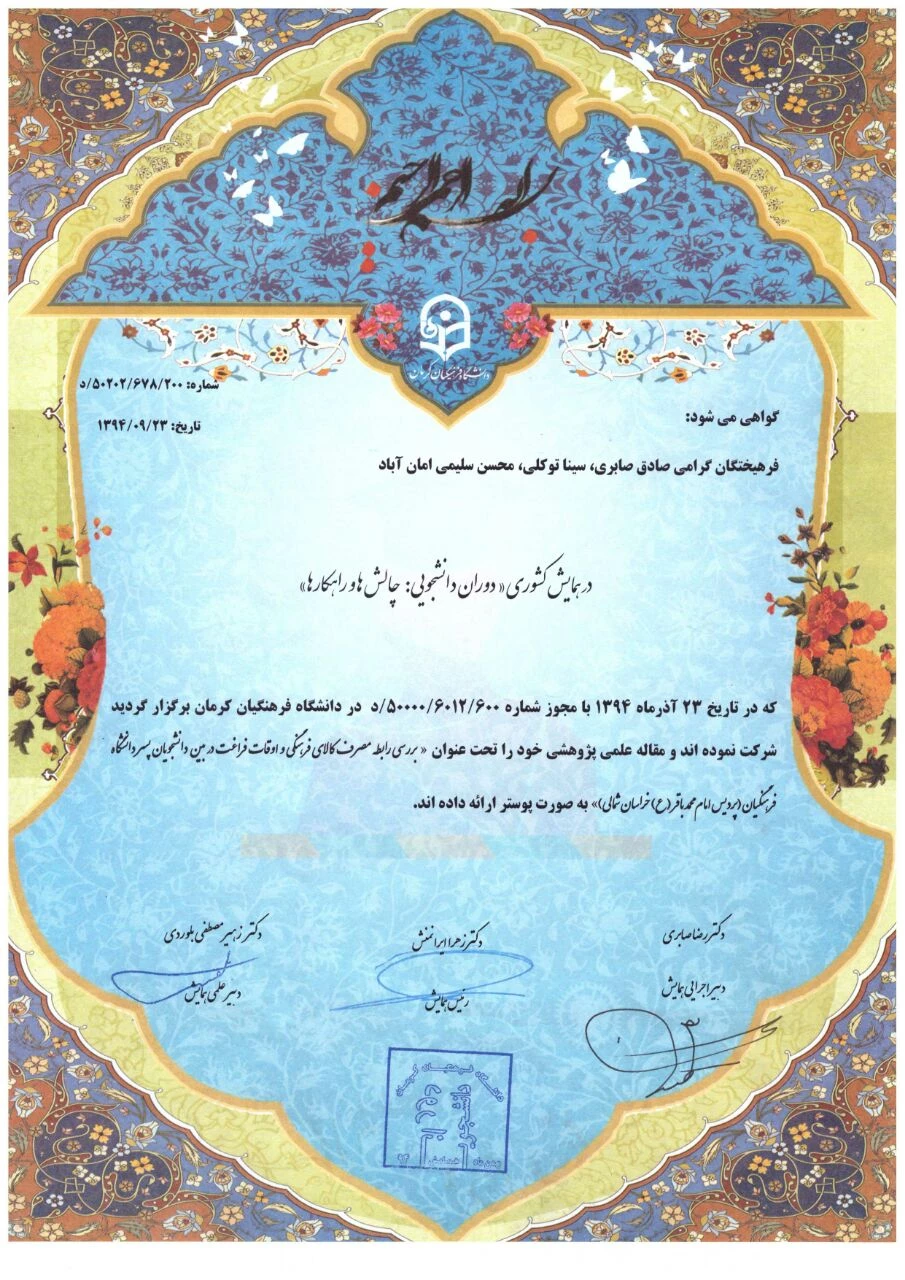 بسم الله الرحمن الرحیم
دانشگاه فرهنگیان کرمان
شماره: ۵۰۲۰۲/۶۷۸/۲۰۰/د
تاریخ: ۱۳۹۴/۰۹/۲۳
گواهی می شود:
فرهیختگان گرامی صادق صابری، سینا توکلی، محسن سلیمی امان آباد
در همایش کشوری « دوران دانشجویی: چالش ها و راهکارها»
که در تاریخ ۲۳ آذرماه ۱۳۹۴ با مجوز شماره ۵۰۰۰۰/۶۰۱۲/۶۰۰/د در دانشگاه فرهنگیان کرمان برگزار گردید
شرکت نموده اند و مقاله علمی پژوهشی خود را تحت عنوان « بررسی رابطه مصرف کالای فرهنگی و اوقات فراغت در بین دانشجویان پسر دانشگاه
فرهنگیان (پردیس امام محمد باقر (ع) خراسان شمالی)» به صورت پوستر ارائه داده اند.
دکتر رضا صابری
دکتر زهرا ایرانمنش
دکتر زهیر مصطفی بلوردی
دبیر اجرایی همایش
رئیس همایش
دبیر علمی همایش
دانشگاه فرهنگیان کرمان
دوران
دانشجویی
همایش
۹۴